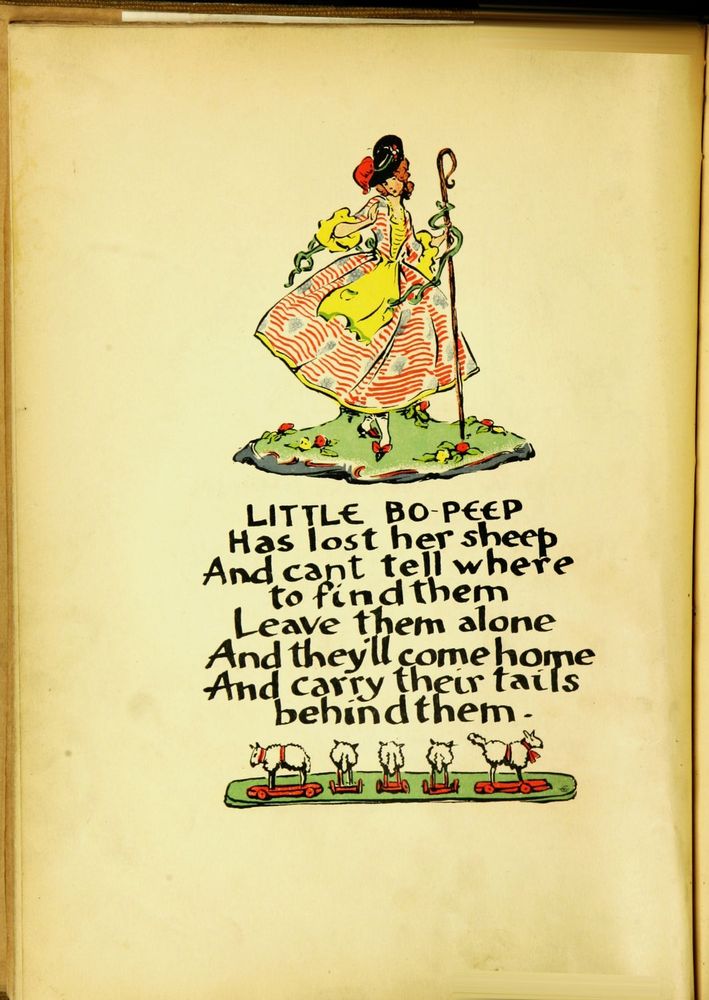 LITTLE BO-PEEP
Has lost her sheep
And cant tell where
to find them
Leave them alone
And they'll come home
And carry their tails
behind them.